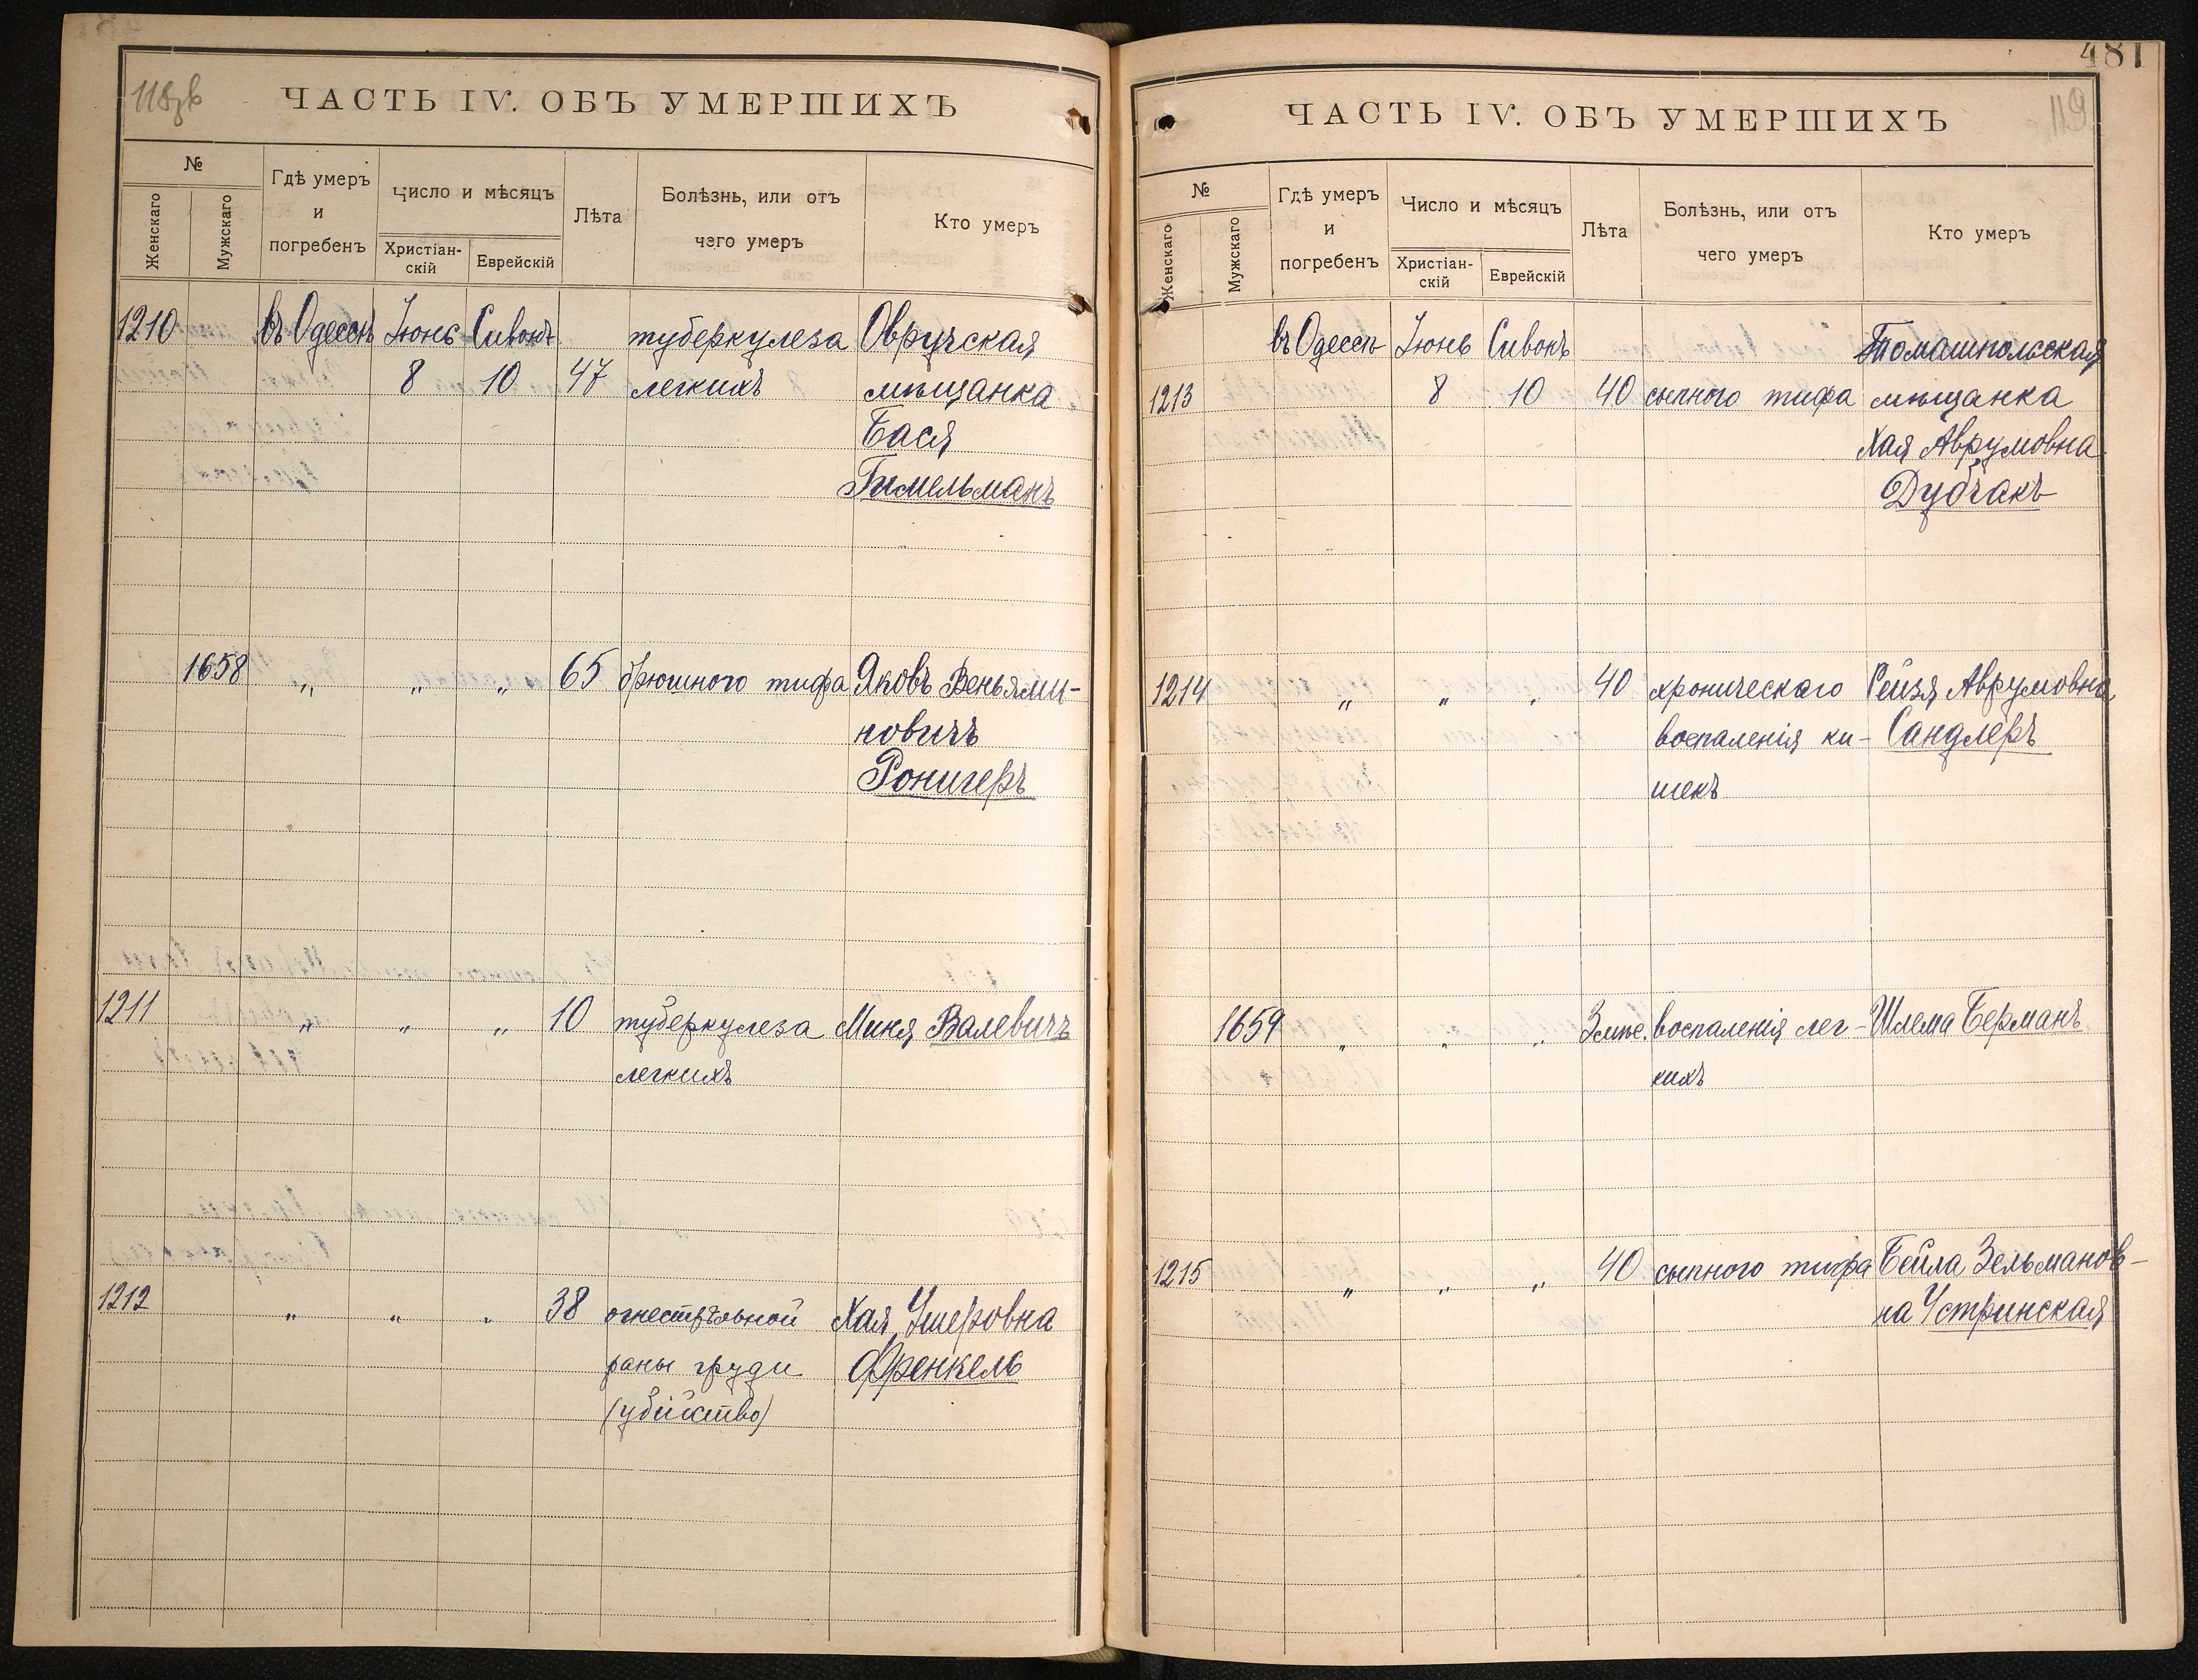 118 об
ЧАСТЬ IV. ОБЪ УМЕРШИХЪ
№
Женскаго
Мужскаго
Гдѣ умеръ
и
погребенъ
Число и мѣсяцъ
Христіан-
скій
Еврейскій
Лѣта
Болѣзнь, или отъ
чего умеръ
Кто умеръ
1210 въ Одессѣ Іюнь Сивонъ туберкулеза Овручская
8 10 47 легкихъ мѣщанка
Бася
Гимельманъ
1658 „ „ „ 65 брюшного тифа Яковъ Веньями-
новичъ
Ронигеръ
1211 „ „ „ 10 туберкулеза Миня Валевичъ
легкихъ
1212 „ „ „ 38 огнестрѣльной Хая Ушеровна
раны груди Френкель
(убійство)
481
119
ЧАСТЬ IV. ОБЪ УМЕРШИХЪ
№
Женскаго
Мужскаго
Гдѣ умеръ
и
погребенъ
Число и мѣсяцъ
Христіан-
скій
Еврейскій
Лѣта
Болѣзнь, или отъ
чего умеръ
Кто умеръ
въ Одессѣ Іюнь Сивонъ Томашпольская
1213 8 10 40 сыпного тифа мѣщанка
Хая Аврумовна
Дубчакъ
1214 „ „ „ 40 хроническаго Рейзя Аврумовна
воспаленія ки- Сандлеръ
шекъ
1659 „ „ „ 3 мѣс. воспаленія лег- Шлема Берманъ
кихъ
1215 „ „ „ 40 сыпного тифа Бейла Зельманов-
на Устринская